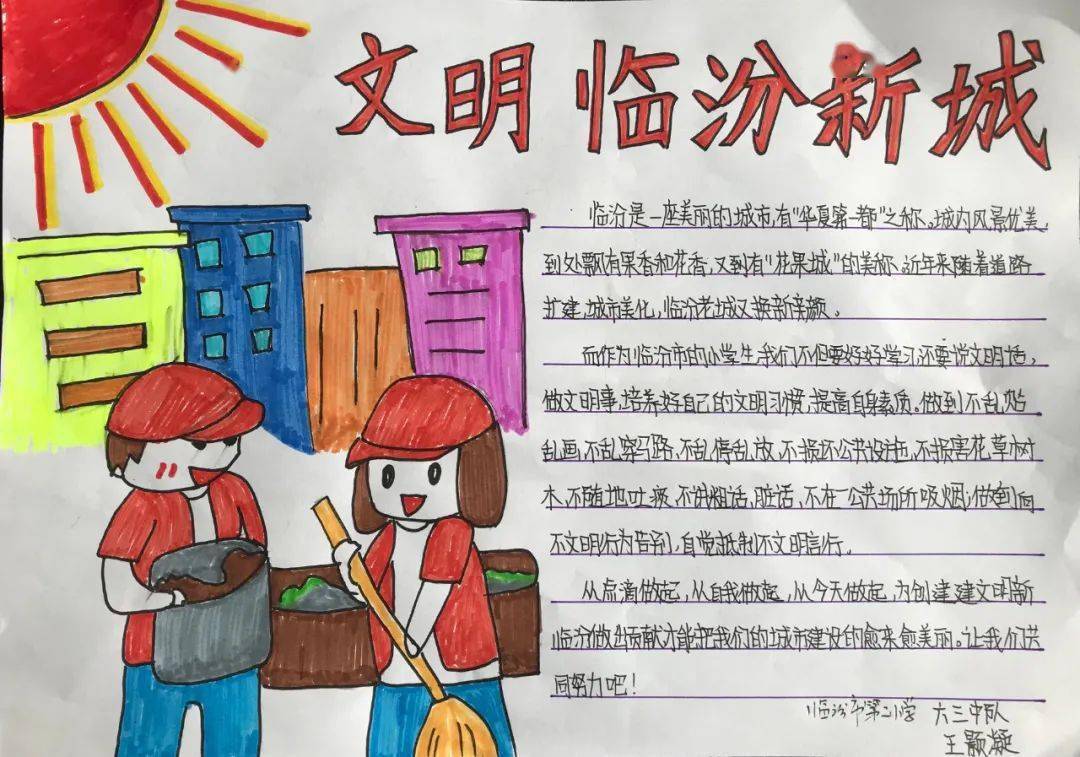 文明 临汾新城
临汾是一座美丽的城市,有“华夏第一都”之称。城内风景优美,
到处飘有果香和花香,又到有“花果城”的美称。近年来随着道路
扩建,城市美化,临汾老城又换新亲颜。
而作为临汾市的小学生,我们不但要好好学习,还要说文明话,
做文明事,培养好自己的文明习惯,提高自身素质。做到不乱
乱画,不乱穿马路,不乱停乱放,不损坏公共设施,不损害花草树
木,不随地吐痰,不讲粗话,脏话,不在公共场所吸烟;做到向
不文明行为告别,自觉抵制不文明言行。
从点滴做起,从自我做起,从今天做起,为创建建文明新
临汾做出贡献,才能把我们的城市建设的愈来愈美丽。让我们共
同努力吧!
临汾市第二小学 六三中队
王颢凝